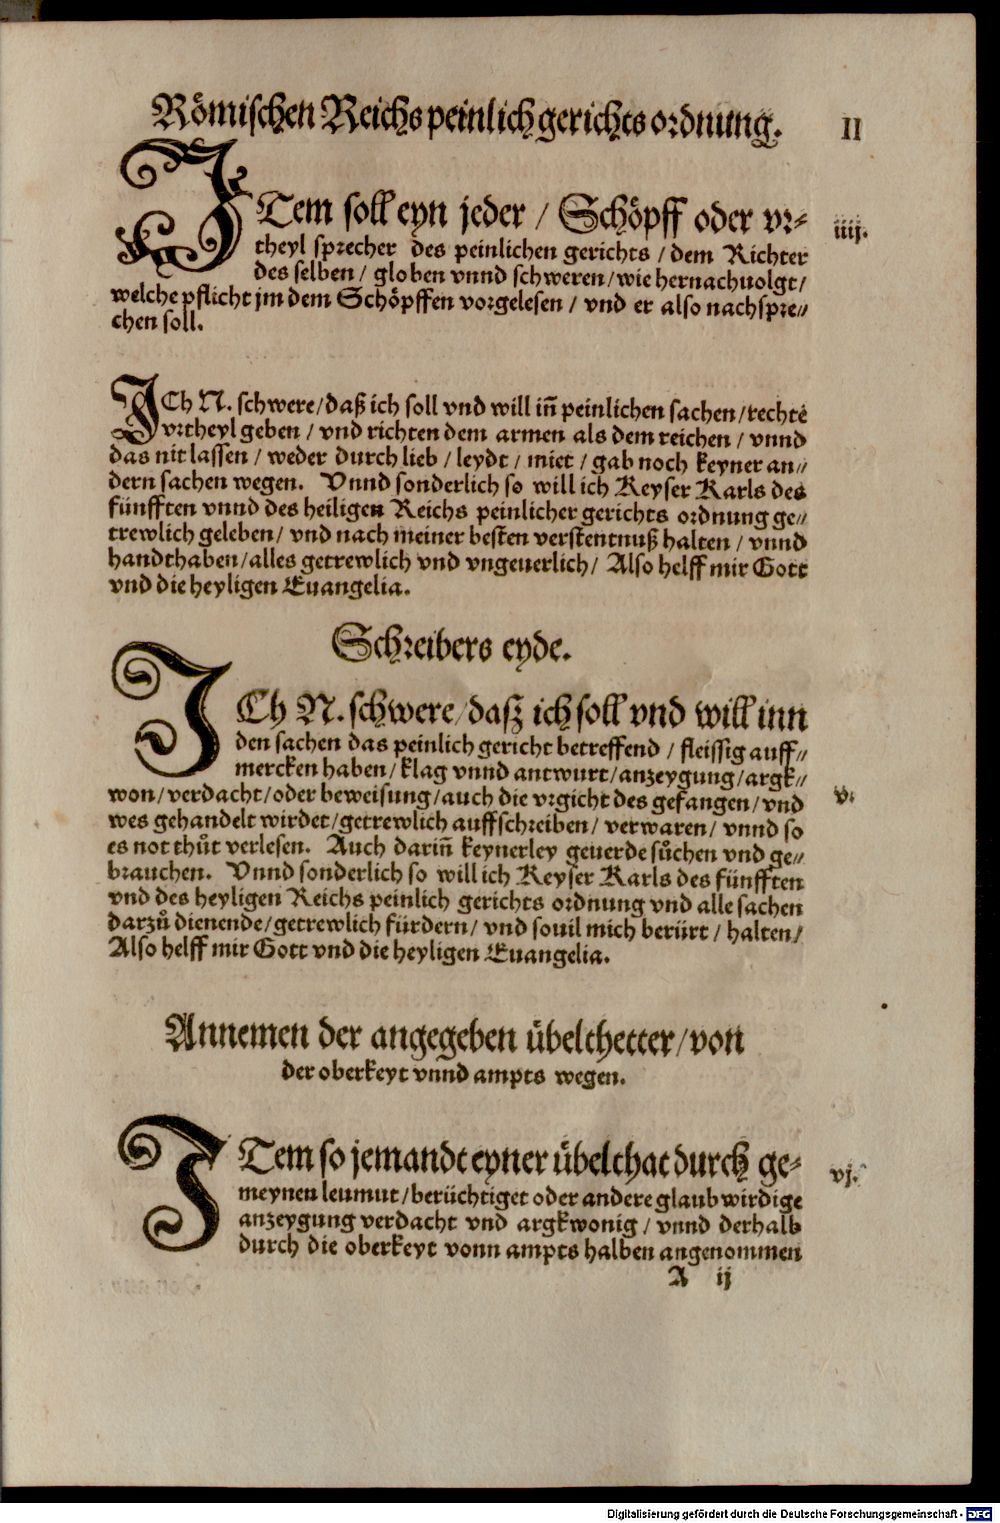 Römischen Reichs peinlich gerichts ordnung. II
ITem soll eyn jeder / Schöpff oder vr- iiij.
theyl sprecher des peinlichen gerichts / dem Richter
des selben / globen vnnd schweren / wie hernachuolgt /
welche pflicht jm dem Schöpffen vorgelesen / vnd er also nachspre⸗
chen soll.
ICh N. schwere / daß ich soll vnd will iñ peinlichen sachen / rechtē
vrtheyl geben / vnd richten dem armen als dem reichen / vnnd
das nit lassen / weder durch lieb / leydt / miet / gab noch keyner an⸗
dern sachen wegen. Vnnd sonderlich so will ich Keyser Karls des
fünfften vnnd des heiligen Reichs peinlicher gerichts ordnung ge⸗
trewlich geleben / vnd nach meiner besten verstentnuß halten / vnnd
handthaben / alles getrewlich vnd vngeuerlich / Also helff mir Gott
vnd die heyligen Euangelia.
Schreibers eyde.
ICh N. schwere / daß ich soll vnd will inn
den sachen das peinlich gericht betreffend / fleissig auff⸗
mercken haben / klag vnnd antwurt / anzeygung / argk⸗
won / verdacht / oder beweisung / auch die vrgicht des gefangen / vnd v.
wes gehandelt wirdet / getrewlich auffschreiben / verwaren / vnnd so
es not thůt verlesen. Auch dariñ keynerley geuerde sůchen vnd ge⸗
brauchen. Vnnd sonderlich so will ich Keyser Karls des fünfften
vnd des heyligen Reichs peinlich gerichts ordnung vnd alle sachen
darzů dienende / getrewlich fürdern / vnd souil mich berürt / halten /
Also helff mir Gott vnd die heyligen Euangelia.
Annemen der angegeben übelthetter / von
der oberkeyt vnnd ampts wegen.
ITem so jemandt eyner übelthat durch ge- vj.
meynen leumut / berüchtiget oder andere glaubwirdige
anzeygung verdacht vnd argkwonig / vnnd derhalb
durch die oberkeyt vonn ampts halben angenommen
A ij
Digitalisierung gefördert durch die Deutsche Forschungsgemeinschaft - DFG